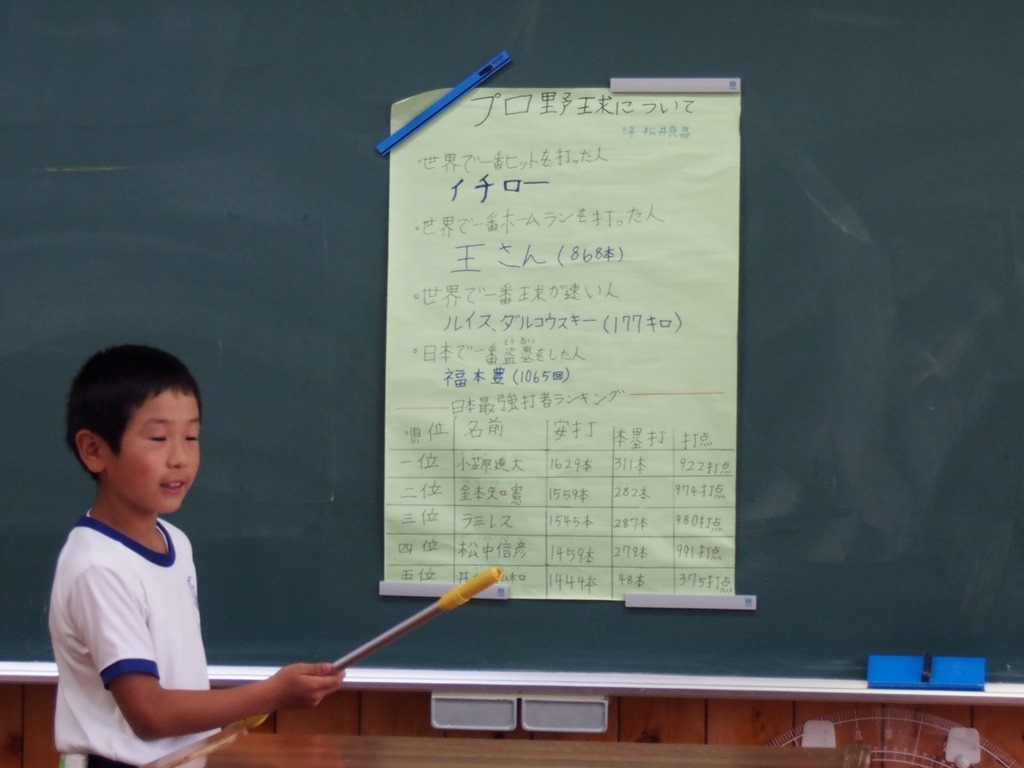 プロ野球について
松井良昌
・世界で一番ヒットを打った人
イチロー
・世界で一番ホームランを打った人
王さん(868本)
・世界で一番球が速い人
ルイス、ダルコウスキー(177キロ)
・日本で一番盗塁をした人
福本豊(1065回)
日本最強打者ランキング
順位 名前 安打 本塁打 打点
一位 小笠原道大 1629本 311本 922打点
二位 金本知憲 1559本 282本 974打点
三位 ラミレス 1545本 287本 980打点
四位 松中信彦 1459本 279本 991打点
五位 1444本 48本 375打点